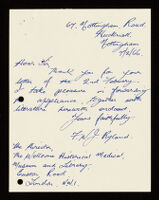 67, Nottingham Road,
Hucknall,
Nottingham
Dear Sir,
Thank you for your
letter of the 2nd February.
I take pleasure in forwarding
appearance, together with
literature herewith enclosed.
Yours faithfully,
F. W. J. Ryland.
The Director,
The Wellcome Historical Medical
Museum and Library,
Euston Road
London, N.W.1.